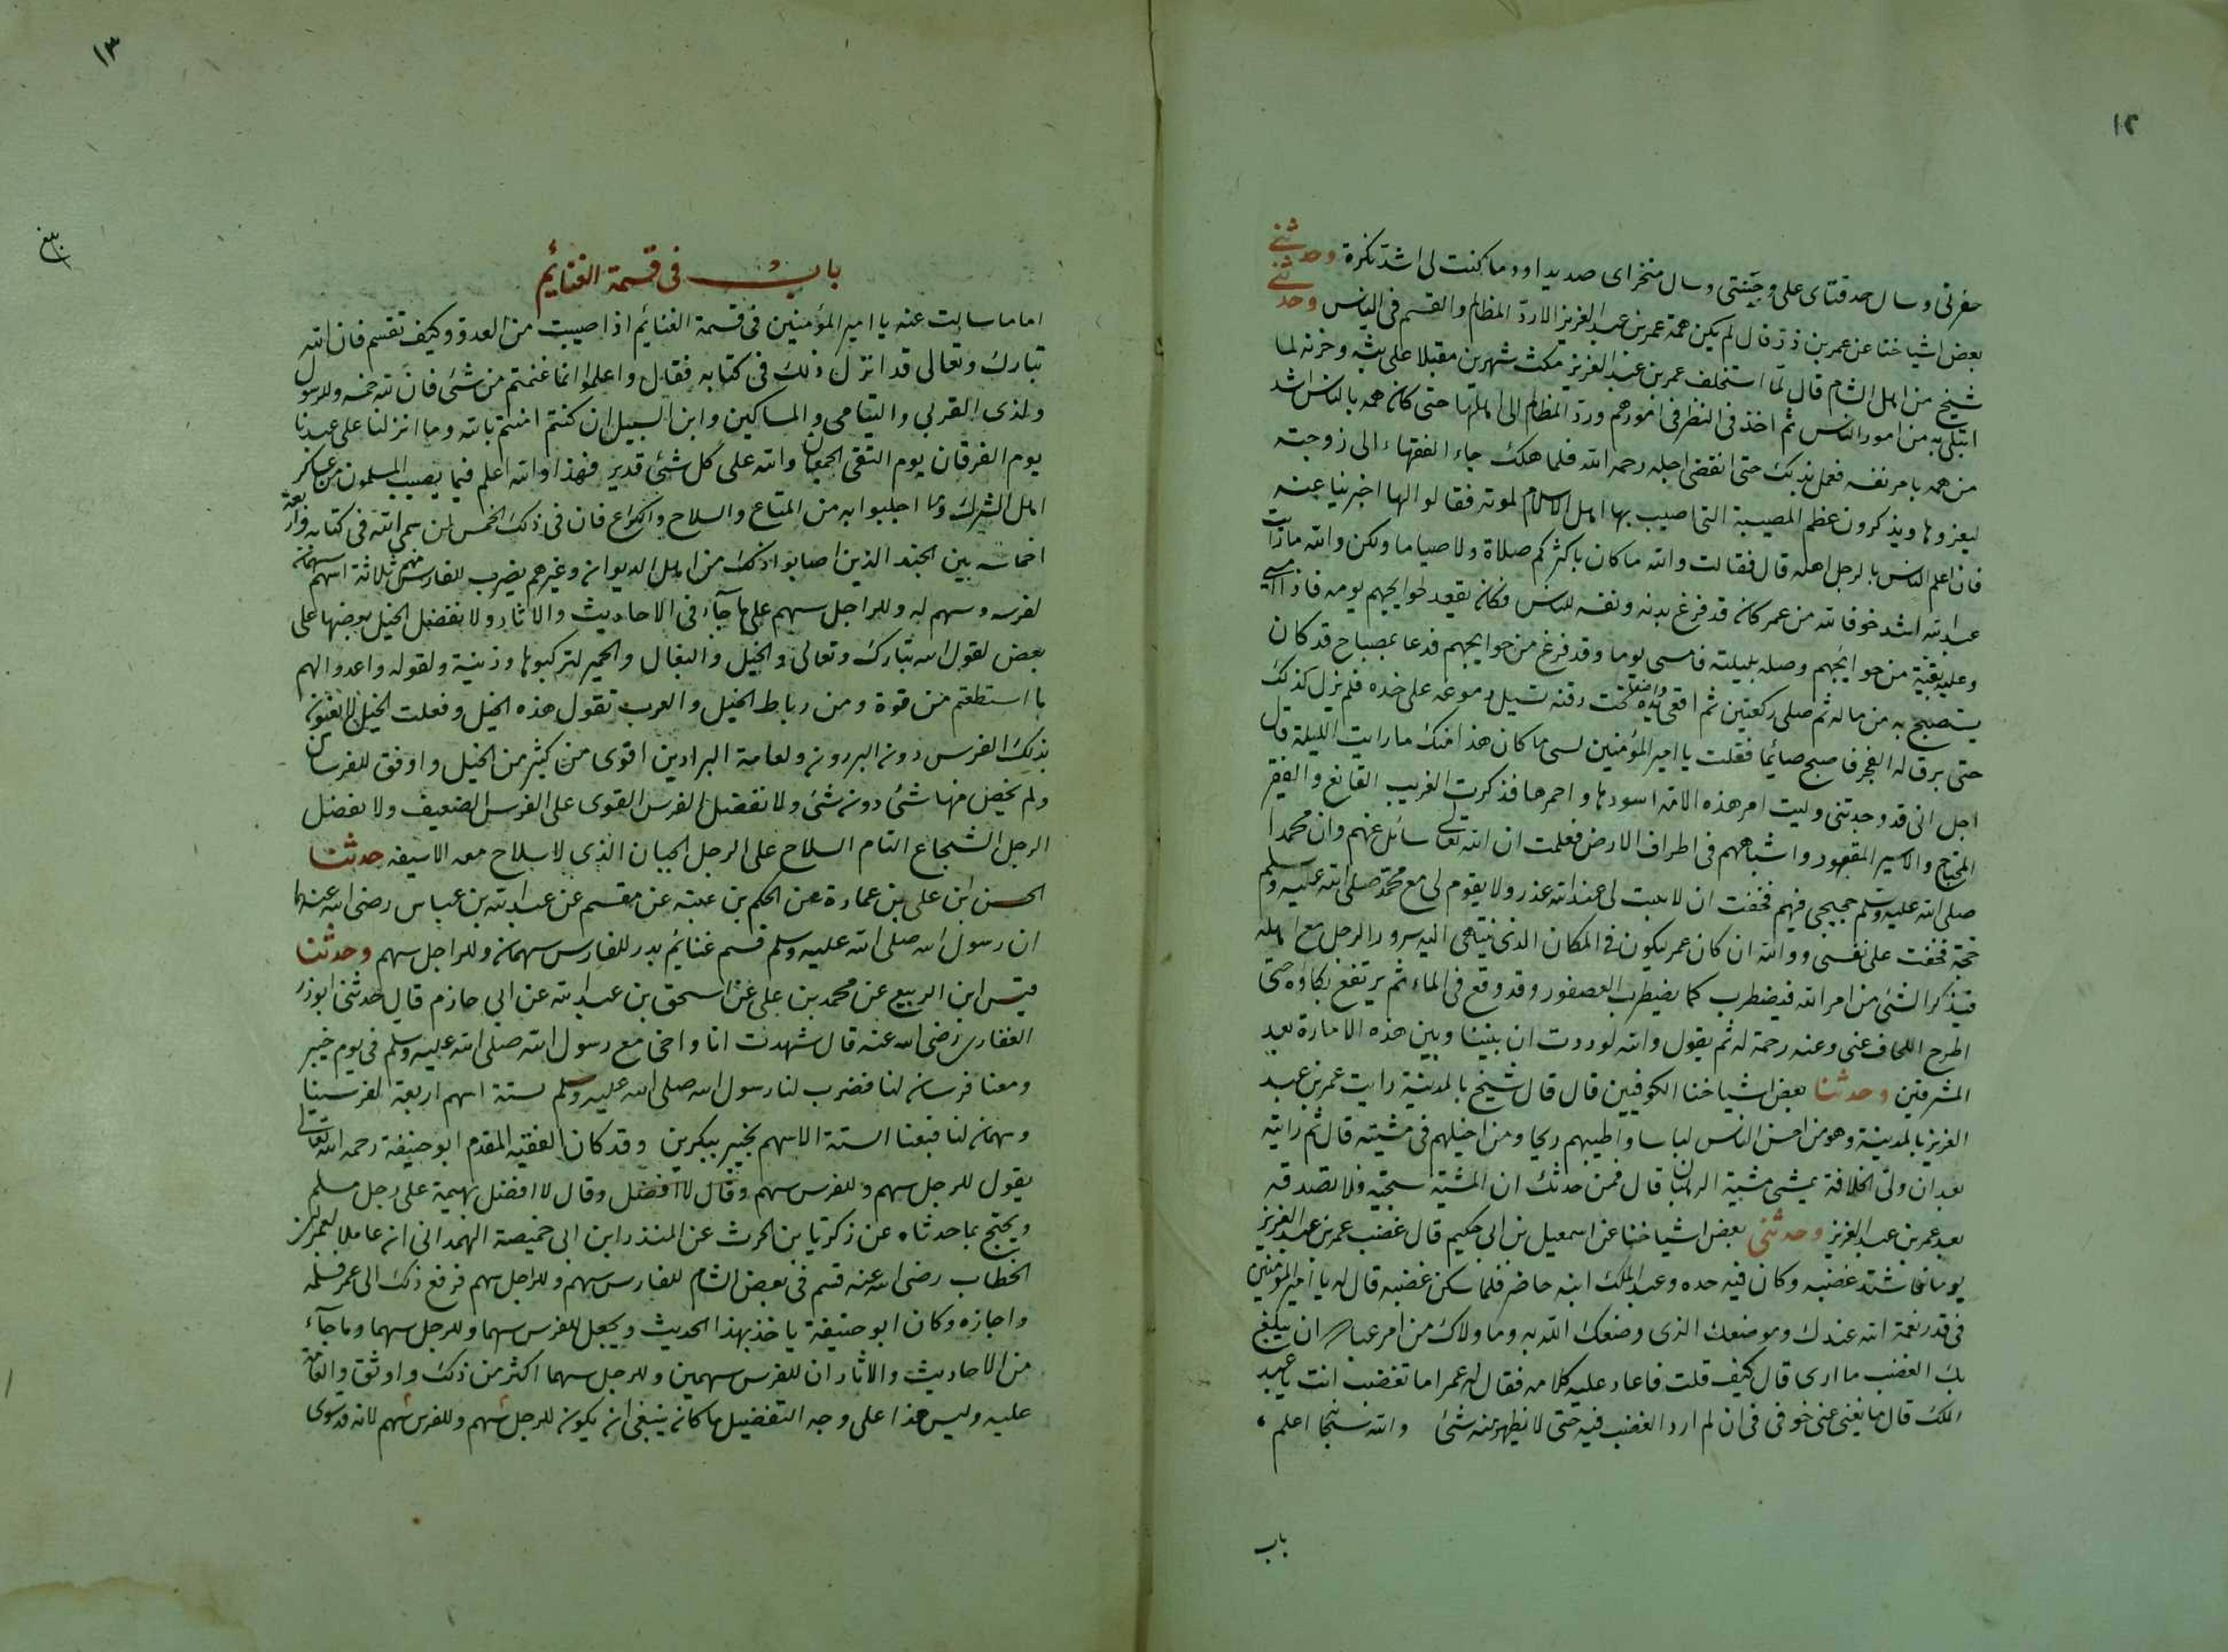 ١٢
حفرتى وسال حدقتاى على وجنتى وسال منخراى صديدا ودما كنت لى اشد نكرة وحدثنى
بعض اشياخنا عن عمر بن ذر قال لم يكن همة عمر بن عبد العزيز الا رد المظالم والقسم فى الناس وحدثنى
شيخ من اهل الشام قال لما استخلف عمر بن عبد العزيز مكث شهرين مقبلا على بثه وحزنه لما
ابتلى به من امور الناس ثم اخذ فى النظر فى امورهم ورد المظالم الى اهلها حتى كان همه بالناس اشد
من همه بامر نفسه فعمل بذلك حتى انقضى اجله رحمه الله فلما هلك جاء الفقهاء الى زوجته
ليعزوها ويذكرون عظم المصيبة التى اصيب بها اهل الاسلام لموته فقالوا لها اخبرينا عنه
فان اعلم الناس بالرجل اهله قال فقالت والله ما كان باكثركم صلاة ولا صياما ولكن والله ما رايت
عبدا لله اشد خوفا لله من عمر كان قد فرغ بدنه ونفسه للناس فكان يقعد لحوايجهم يومه فاذا امسى
وعليه بقية من حوايجهم وصله بليلته فامسى يوما وقد فرغ من حوايجهم فدعا بمصباح قد كان
يستصبح به من ماله ثم صلى ركعتين ثم اقعى واضعا يده تحت ذقنه تسيل دموعه على خده فلم يزل كذلك
حتى برق له الفجر فاصبح صائما فقلت يا امير المؤمنين لسى ما كان هذا منك ما رايت الليلة قال
اجل انى قد وجدتنى وليت امر هذه الامة اسودها واحمرها فذكرت الغريب القانع والفقير
المحتاج والاسير المقهور واشباههم فى اطراف الارض فعلمت ان الله تعالى سائلى عنهم وان محمدا
صلى الله عليه وسلم حجيجى فيهم فخفت ان لا يثبت لى عند الله عذر ولا يقوم لى مع محمد صلى الله عليه وسلم
حجة فخفت على نفسى ووالله ان كان عمر ليكون فى المكان الذى ينتهى اليه سرور الرجل مع اهله
فيذكر الشئ من امر الله فيضطرب كما يضطرب العصفور وقد وقع فى الماء ثم يرتفع بكاؤه حتى
اطرح اللحاف عنى وعنه رحمة له ثم يقول والله لوددت ان بيننا وبين هذه الامارة بعد
المشرقين وحدثنا بعض اشياخنا الكوفيين قال قال شيخ بالمدينة رايت عمر بن عبد
العزيز بالمدينة وهو من احسن الناس لباسا واطيبهم ريحا ومن اخيلهم فى مشيته قال ثم رايته
بعد ان ولى الخلافة يمشى مشية الرهبان قال فمن حدثك ان المشية سجية فلا تصدقه
بعد عمر بن عبد العزيز وحدثنى بعض اشياخنا عن اسمعيل بن ابى حكيم قال غضب عمر بن عبد العزيز
يوما فاشتد غضبه وكان فيه حده وعبد الملك ابنه حاضر فلما سكن غضبه قال له يا امير المؤمنين
فى قدر نعمة الله عندك وموضعك الذى وضعك الله به وما ولاك من امر عباده ان يبلغ
بك الغضب ما ارى قال كيف قلت فاعاد عليه كلامه فقال له عمر اما تغضب انت يا عبد
الملك قال ما يغنى عنى خوفى فى ان لم ارد الغضب فيه حتى لا يظهر منه شئ والله سبحانه اعلم
باب
١٣
بلغ
باب فى قسمة الغنائم
اما ما سالت عنه يا امير المؤمنين فى قسمة الغنائم اذا اصيبت من العدو وكيف تقسم فان الله
تبارك وتعالى قد انزل ذلك فى كتابه فقال واعلموا انما غنمتم من شئ فان لله خمسه وللرسول
ولذى القربى واليتامى والمساكين وابن السبيل ان كنتم امنتم بالله وما انزلنا على عبدنا
يوم الفرقان يوم التقى الجمعان والله على كل شئ قدير فهذا والله اعلم فيما يصيب المسلمون من عساكر
اهل الشرك وما اجلبوا به من المتاع والسلاح والكراع فان فى ذلك الخمس لمن سمى الله فى كتابه واربعة
اخماسه بين الجند الذين اصابوا ذلك من اهل الديوان وغيرهم يضرب للفارس منهم ثلاثة اسهم سهمان
لفرسه وسهم له وللراجل سهم على ما جآء فى الاحاديث والاثار ولا يفضل الخيل بعضها على
بعض لقول الله تبارك وتعالى والخيل والبغال والحمير لتركبوها وزينة ولقوله واعدوا لهم
ما استطعتم من قوة ومن رباط الخيل والعرب تقول هذه الخيل وفعلت الخيل لا يعنون
بذلك الفرس دون البرذون ولعامة البراذين اقوى من كثير من الخيل واوفق للفرسان
ولم يخص منها شئ دون شئ ولا تفضل الفرس القوى على الفرس الضعيف ولا يفضل
الرجل الشجاع التام السلاح على الرجل الجبان الذى لا سلاح معه الا سيفه حدثنا
الحسن ابن على بن عمارة عن الحكم بن عتبة عن مقسم عن عبد الله بن عباس رضى الله عنهما
ان رسول الله صلى الله عليه وسلم قسم غنائم بدر للفارس سهمان وللراجل سهم وحدثنا
قيس ابن الربيع عن محمد بن على عن اسحق بن عبد الله عن ابى حازم قال حدثنى ابوذر
الغفارى رضى الله عنه قال شهدت انا واخى مع رسول الله صلى الله عليه وسلم فى يوم خيبر
ومعنا فرسان لنا فضرب لنا رسول الله صلى الله عليه وسلم ستة اسهم اربعة لفرسينا
وسهمان لنا فبعنا الستة الاسهم بخيبر ببكرين وقد كان الفقيه المقدم ابو حنيفة رحمه الله تعالى
يقول للرجل سهم وللفرس سهم وقال لا افضل وقال لا افضل بهيمة على رجل مسلم
ويحتج بما حدثناه عن زكريا بن الحرث عن المنذر ابن ابى خميصة الهمدانى ان عاملا لعمر بن
الخطاب رضى الله عنه قسم فى بعض الشام للفارس سهم وللراجل سهم فرفع ذلك الى عمر فسلمه
واجازه وكان ابو حنيفة ياخذ بهذا الحديث ويجعل للفرس سهما وللرجل سهما وما جآء
من الاحاديث والاثار ان للفرس سهمين وللرجل سهما اكثر من ذلك واوثق والعامة
عليه وليس هذا على وجه التفضيل ما كان ينبغى ان يكون للرجل سهم وللفرس سهم لانه قد سوى